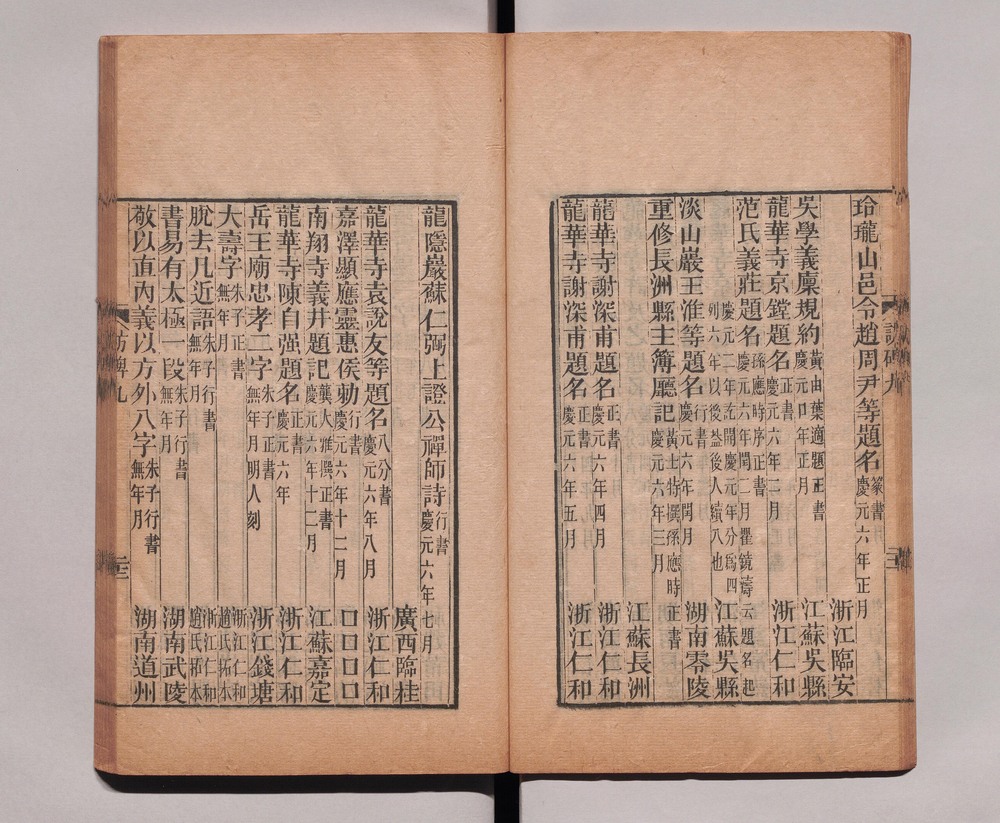 玲瓏山邑令趙周尹等題名篆書慶元六年正月
浙江臨安
吳學義廩規約黃由葉適題正書慶元口年正月
江蘇吳縣
龍華寺京鏜題名正書慶元六年二月
浙江仁和
范氏義莊題名孫應時序正書慶元六年閏二月瞿鏡濤云題名起
慶元二年訖開慶元年分爲四
列六年以後益後人續入也
江蘇吳縣
淡山巖王淮等題名行書慶元六年閏月
湖南零陵
重修長洲縣主簿廳記黃士特撰孫應時正書慶元六年三月
江蘇長洲
龍華寺謝深甫題名正書慶元六年四月
浙江仁和
龍華寺謝深甫題名正書慶元六年五月
浙江仁和
訪碑九
三
龍隱巖蘇仁弼上證公禪師詩行書慶元六年七月
廣西臨桂
龍華寺袁說友等題名八分書慶元六年八月
浙江仁和
嘉澤顯應靈惠侯勅行書慶元六年十二月
口口口口
南翔寺義井題記龔大雅撰正書慶元六年十二月
江蘇嘉定
龍華寺陳自强題名正書慶元六年
浙江仁和
岳王廟忠孝二字朱子正書無年月明人刻
浙江錢塘
大壽字朱子正書無年月
浙江仁和趙氏拓本
脫去凡近語朱子行書無年月
浙江仁和趙氏拓本
書易有太極一段朱子行書無年月
湖南武陵
敬以直內義以方外八字朱子行書無年月
湖南道州
訪碑九
三